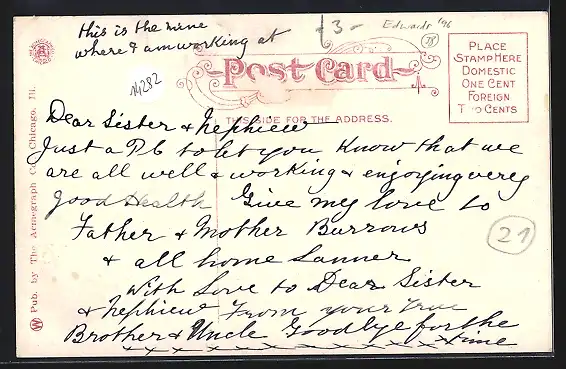 this is the mine
where I am working at
£3-
Edwards '96
JB
14282
Post Card
PLACE
STAMP HERE
DOMESTIC
ONE CENT
FOREIGN
TWO CENTS
THIS SIDE FOR THE ADDRESS.
Dear Sister & Nephiew
Just a P C to let you Know that we
are all well & working & enjoying very
good Health Give my love to
Father & Mother Burrows
& all home
With Love to Dear Sister
& Nephiew From your True
Brother & Uncle Goodbye for the
time
x x x x x x x x x x x x x
21
Pub. by The Acmegraph Co., Chicago, Ill.